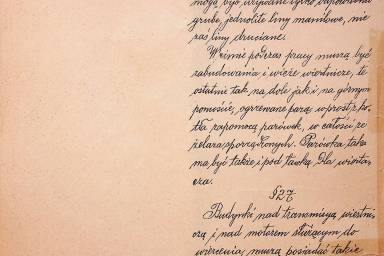 mogą być używane tylko odpowiednio
grube, jednolite liny manilowe, nie
zaś liny druciane.
W zimie podczas pracy muszą być
zabudowania i wieże wiertnicze, te
ostatnie tak na dole jak i na górnym
pomoście, ogrzewane parą wprost z ko-
tła zapomocą parówek, w całości ze
żelaza sporządzonych. Parówka taka
ma być także i pod ławką dla wierta-
cza.
§27
Budynki nad transmisyą wiertni-
czą i nad motorem służącym do
wiercenia, muszą posiadać takie